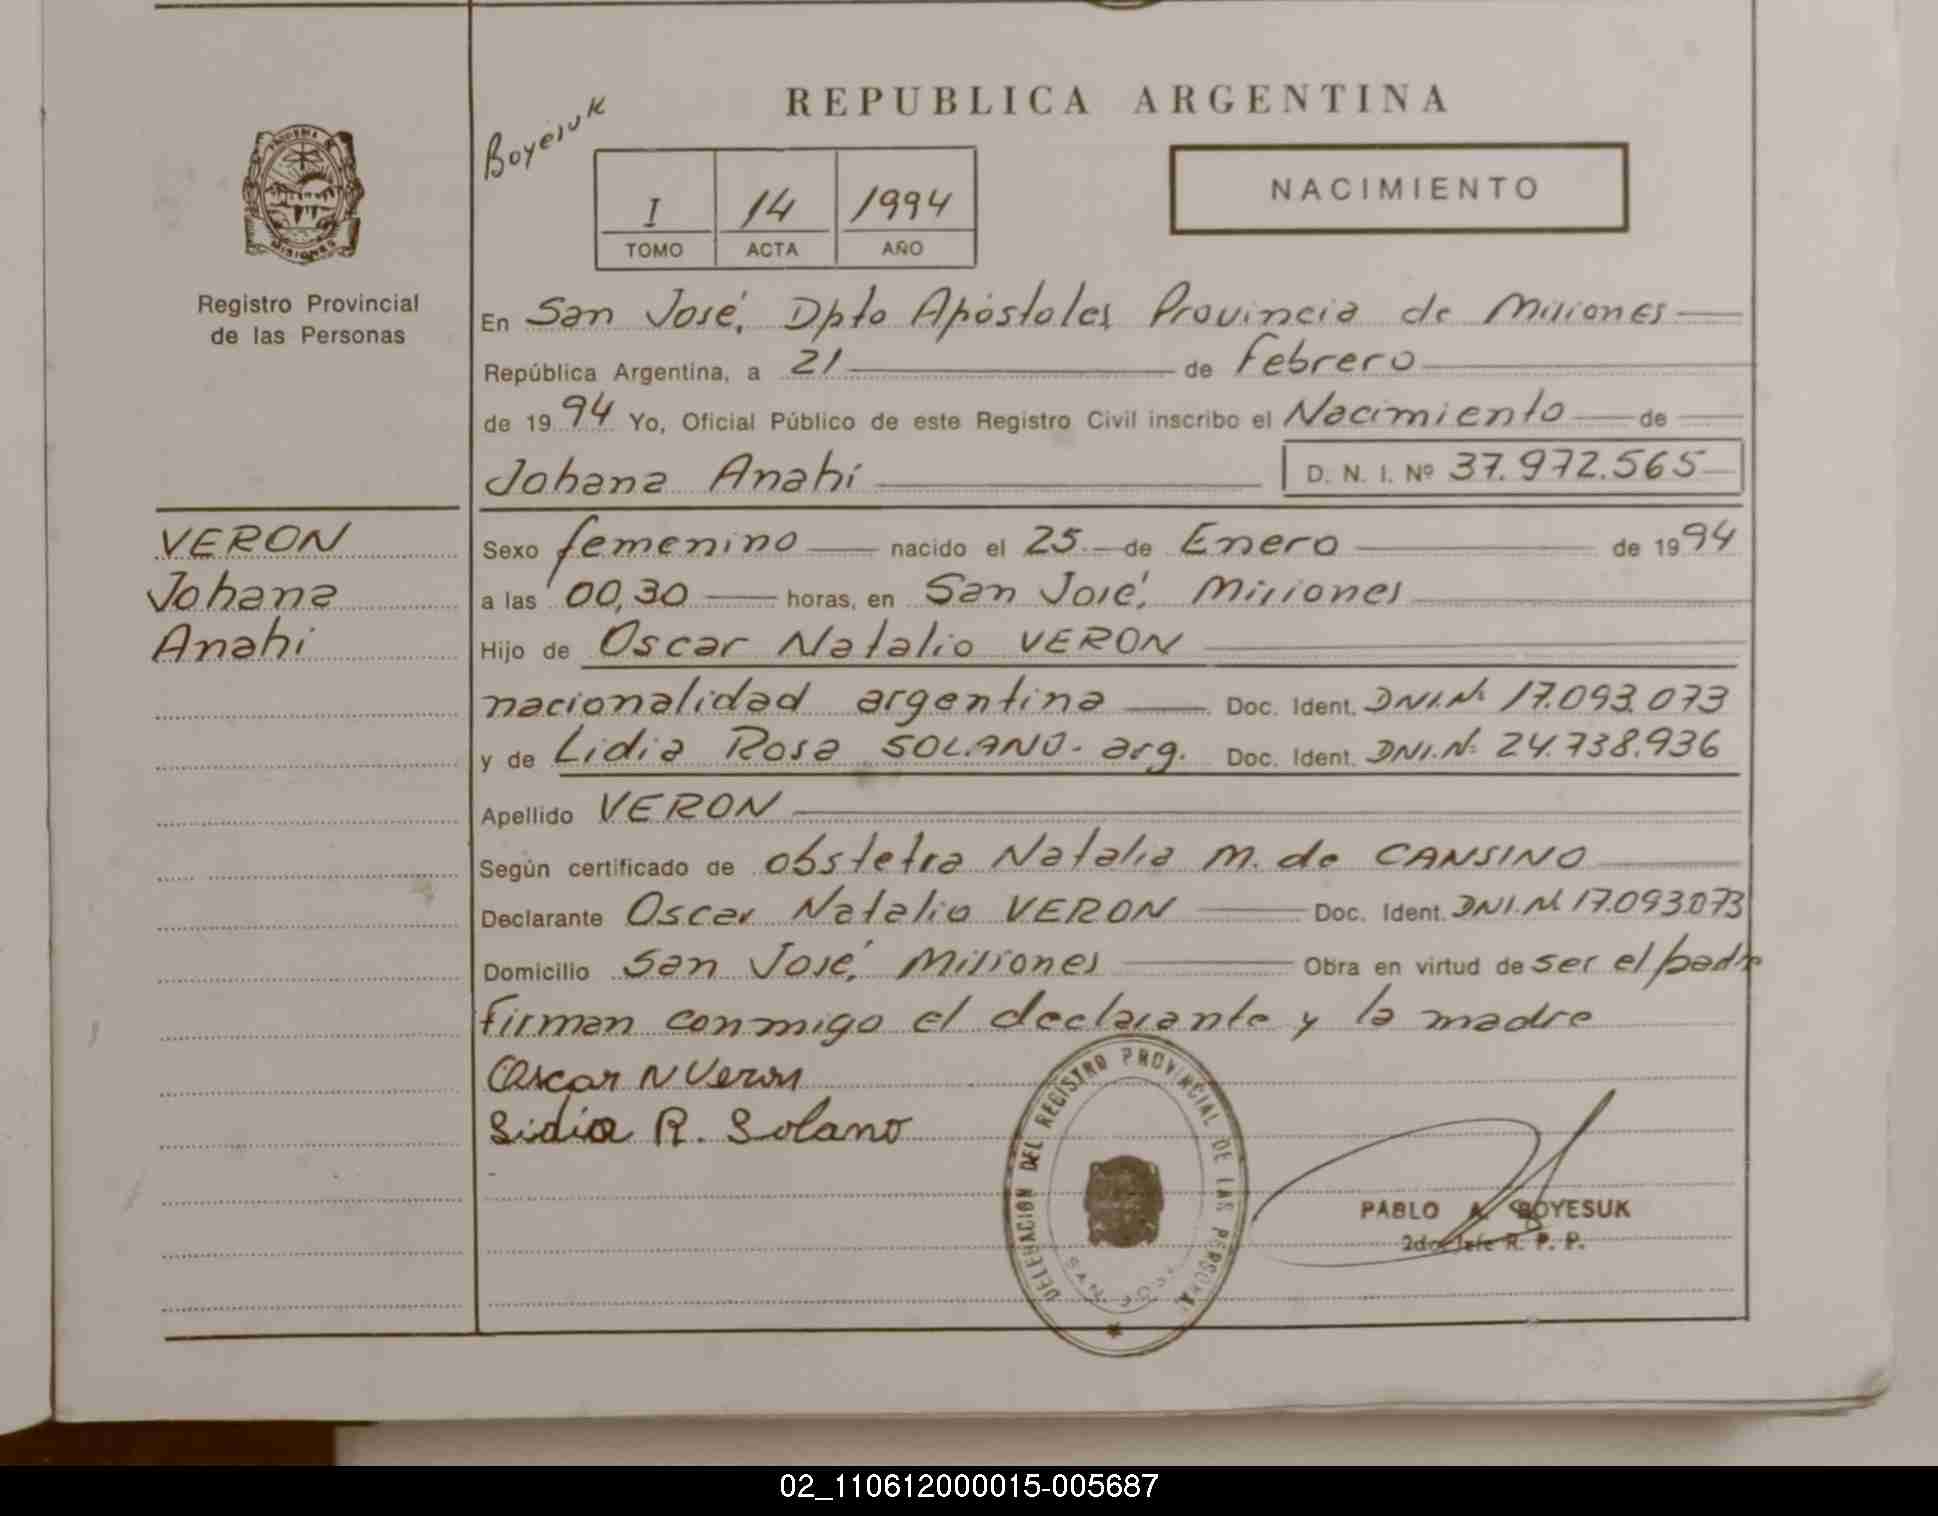 REPUBLICA ARGENTINA
Boyesuk
I 14 1994
TOMO ACTA AÑO
NACIMIENTO
MISIONES
Registro Provincial
de las Personas
En San José, Dpto Apóstoles Provincia de Misiones
República Argentina, a 21 de Febrero
de 1994 Yo, Oficial Público de este Registro Civil inscribo el Nacimiento de
Johana Anahi D. N. I. Nº 37.972.565
VERON
Johana
Anahi
Sexo femenino nacido el 25 de Enero de 1994
a las 00,30 horas, en San José, Misiones
Hijo de Oscar Natalio VERON
nacionalidad argentina Doc. Ident. DNI.Nº 17.093.073
y de Lidia Rosa SOLANO. arg. Doc. Ident. DNI.Nº 24.738.936
Apellido VERON
Según certificado de obstetra Natalia M. de CANSINO
Declarante Oscar Natalio VERON Doc. Ident. DNI.Nº 17.093.073
Domicilio San José, Misiones Obra en virtud de ser el padre
Firman conmigo el declarante y la madre
Oscar N Veron
Lidia R. Solano
DELEGACION DEL REGISTRO PROVINCIAL DE LAS PERSONAS
SAN JOSE
PABLO A. BOYESUK
2do. Jefe R. P. P.
02_110612000015-005687